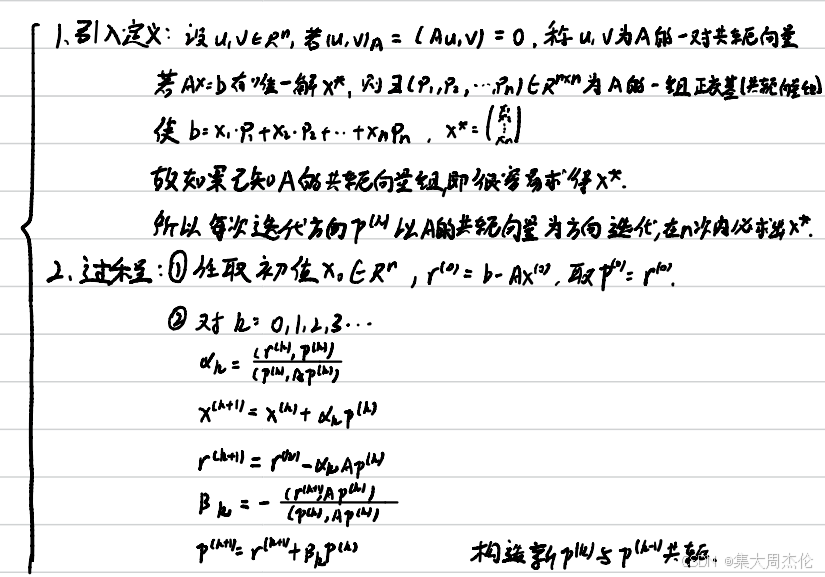 1、引入定义: 设 u,v∈Rⁿ, 若 (u,v)_A = (Au,v) = 0, 称 u,v 为A的一对共轭向量
若 Ax=b 有唯一解 x*, 则 ∃(P₁,P₂,…,Pₙ)∈Rⁿˣⁿ 为 A的一组正交基(共轭向量组)
使 b=x₁·P₁+x₂·P₂+…+xₙPₙ, x*=
故如果已知A的共轭向量组,即很容易求得x*.
所以 每次迭代方向 p⁽ᵏ⁾ 以A的共轭向量为方向迭代,在n次内必求出x*.
2、过程: ① 任取初值 x₀∈Rⁿ, r⁽⁰⁾=b-Ax⁽⁰⁾, 取 p⁽⁰⁾=r⁽⁰⁾.
② 对 k=0,1,2,3…
αₖ = (r⁽ᵏ⁾,p⁽ᵏ⁾)/(p⁽ᵏ⁾,Ap⁽ᵏ⁾)
x⁽ᵏ⁺¹⁾ = x⁽ᵏ⁾+αₖp⁽ᵏ⁾
r⁽ᵏ⁺¹⁾ = r⁽ᵏ⁾-αₖAp⁽ᵏ⁾
βₖ = -(r⁽ᵏ⁺¹⁾,Ap⁽ᵏ⁾)/(p⁽ᵏ⁾,Ap⁽ᵏ⁾)
p⁽ᵏ⁺¹⁾=r⁽ᵏ⁺¹⁾+βₖp⁽ᵏ⁾ 构造新p⁽ᵏ⁾与p⁽ᵏ⁻¹⁾共轭.
CSDN @集大周杰伦